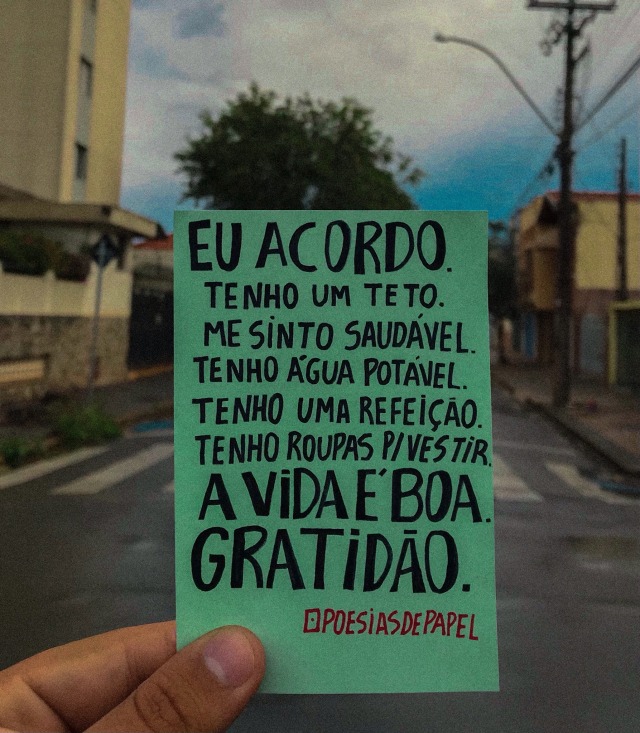 EU ACORDO.
TENHO UM TETO.
ME SINTO SAUDÁVEL.
TENHO ÁGUA POTÁVEL.
TENHO UMA REFEIÇÃO.
TENHO ROUPAS P/VESTIR.
A VIDA É BOA.
GRATIDÃO.
POESIASDEPAPEL